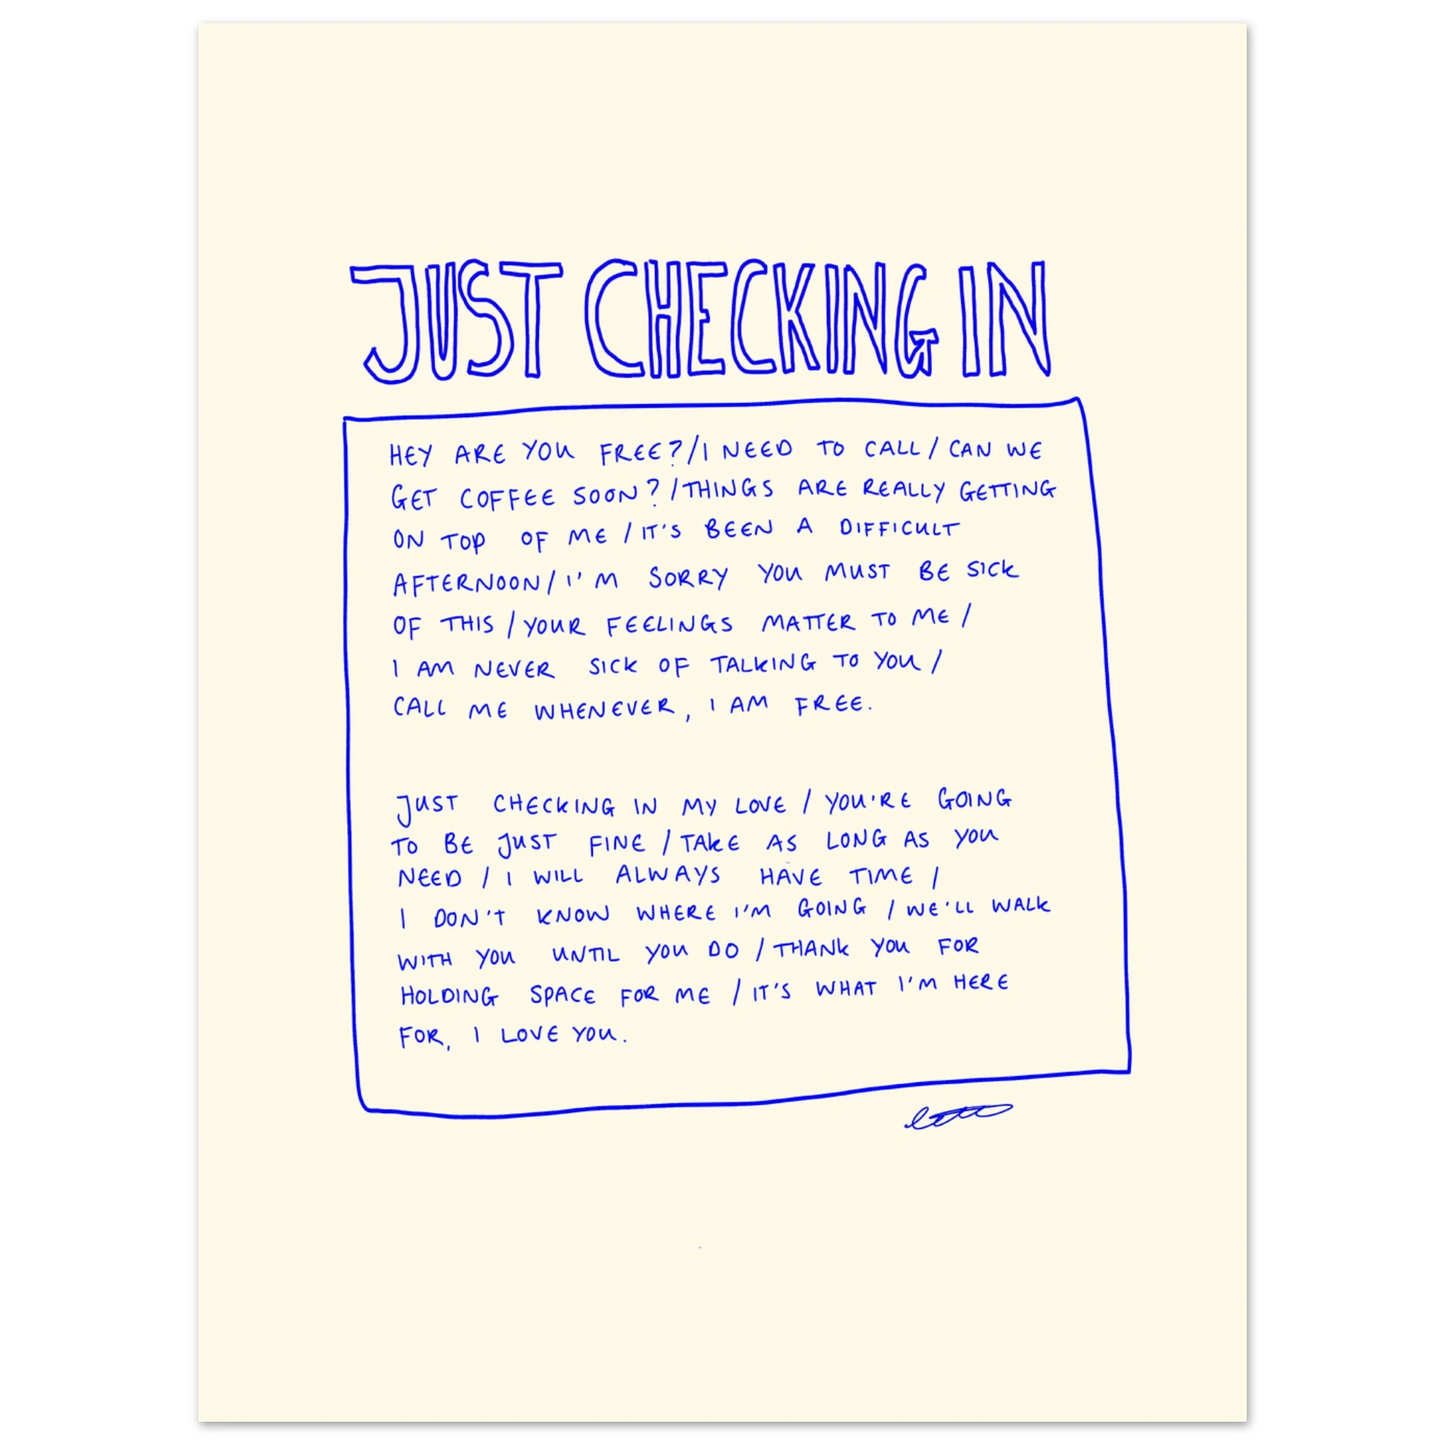 JUST CHECKING IN
HEY ARE YOU FREE?/I NEED TO CALL/CAN WE
GET COFFEE SOON?/THINGS ARE REALLY GETTING
ON TOP OF ME/IT'S BEEN A DIFFICULT
AFTERNOON/I'M SORRY YOU MUST BE SICK
OF THIS/YOUR FEELINGS MATTER TO ME/
I AM NEVER SICK OF TALKING TO YOU/
CALL ME WHENEVER, I AM FREE.
JUST CHECKING IN MY LOVE/YOU'RE GOING
TO BE JUST FINE/TAKE AS LONG AS YOU
NEED/I WILL ALWAYS HAVE TIME/
I DON'T KNOW WHERE I'M GOING/WE'LL WALK
WITH YOU UNTIL YOU DO/THANK YOU FOR
HOLDING SPACE FOR ME/IT'S WHAT I'M HERE
FOR, I LOVE YOU.